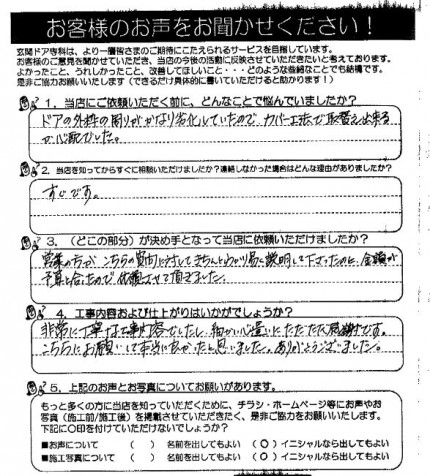 お客様のお声をお聞かせください！
玄関ドア専科は、より一層皆さまのご期待にこたえられるサービスを目指しています。
お客様のご意見を聞かせていただき、当店の今後の活動に反映させていただきたいと考えております。
よかったこと、うれしかったこと、改善してほしいこと・・・どのような些細なことでも結構です。
是非ご協力お願いいたします（できるだけ具体的に書いていただけると助かります！）
1．当店にご依頼いただく前に、どんなことで悩んでいましたか？
ドアの外枠の周りがかなり劣化していたので、カバー工法で取替え出来る
か心配でした。
2．当店を知ってからすぐに相談いただけましたか？連絡しなかった場合はどんな理由がありましたか？
すぐです。
3．（どこの部分）が決め手となって当店に依頼いただけましたか？
営業の方が こちらの質問に対してきちんとわかり易く説明して下さったのと、金額が
予算と合たので 依頼させて頂きました。
4．工事内容および仕上がりはいかがでしょうか？
非常に丁寧な工事内容でしたし、細かい心遣いに ただただ感謝です。
こちらにお願いして本当に良かったと思いました。ありがとうございました。
5．上記のお声とお写真についてお願いがあります。
もっと多くの方に当店を知っていただくために、チラシ・ホームページ等にお声やお
写真（施工前/施工後）を掲載させていただきたく、是非ご協力をお願いいたします。
下記に○印を付けていただけないでしょうか？
■お声について （ ） 名前を出してもよい （○）イニシャルなら出してもよい
■施工写真について （ ） 名前を出してもよい （○）イニシャルなら出してもよい